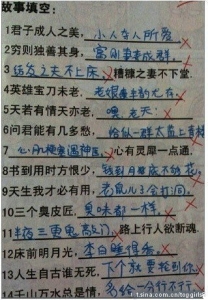 故事填空：
1君子成人之美，小人夺人所爱
2穷则独善其身，富则妻妾成群
3结发之夫不上床，糟糠之妻不下堂.
4英雄宝刀未老，老娘风韵犹存
5天若有情天亦老，
6问君能有几多愁，恰似一群太监上青楼
7心肌梗塞遇神医，心有灵犀一点通.
8书到用时方恨少，钱到月底不够花
9天生我才必有用，老鼠儿子会打洞.
10三个臭皮匠，臭味都一样
11半夜三更鬼敲门，路上行人欲断魂.
12床前明月光，李白睡得香
13人生自古谁无死，下个就要轮到你
14千山万水总是情，多给一分行不行
t.sina.com.cn/toggirls